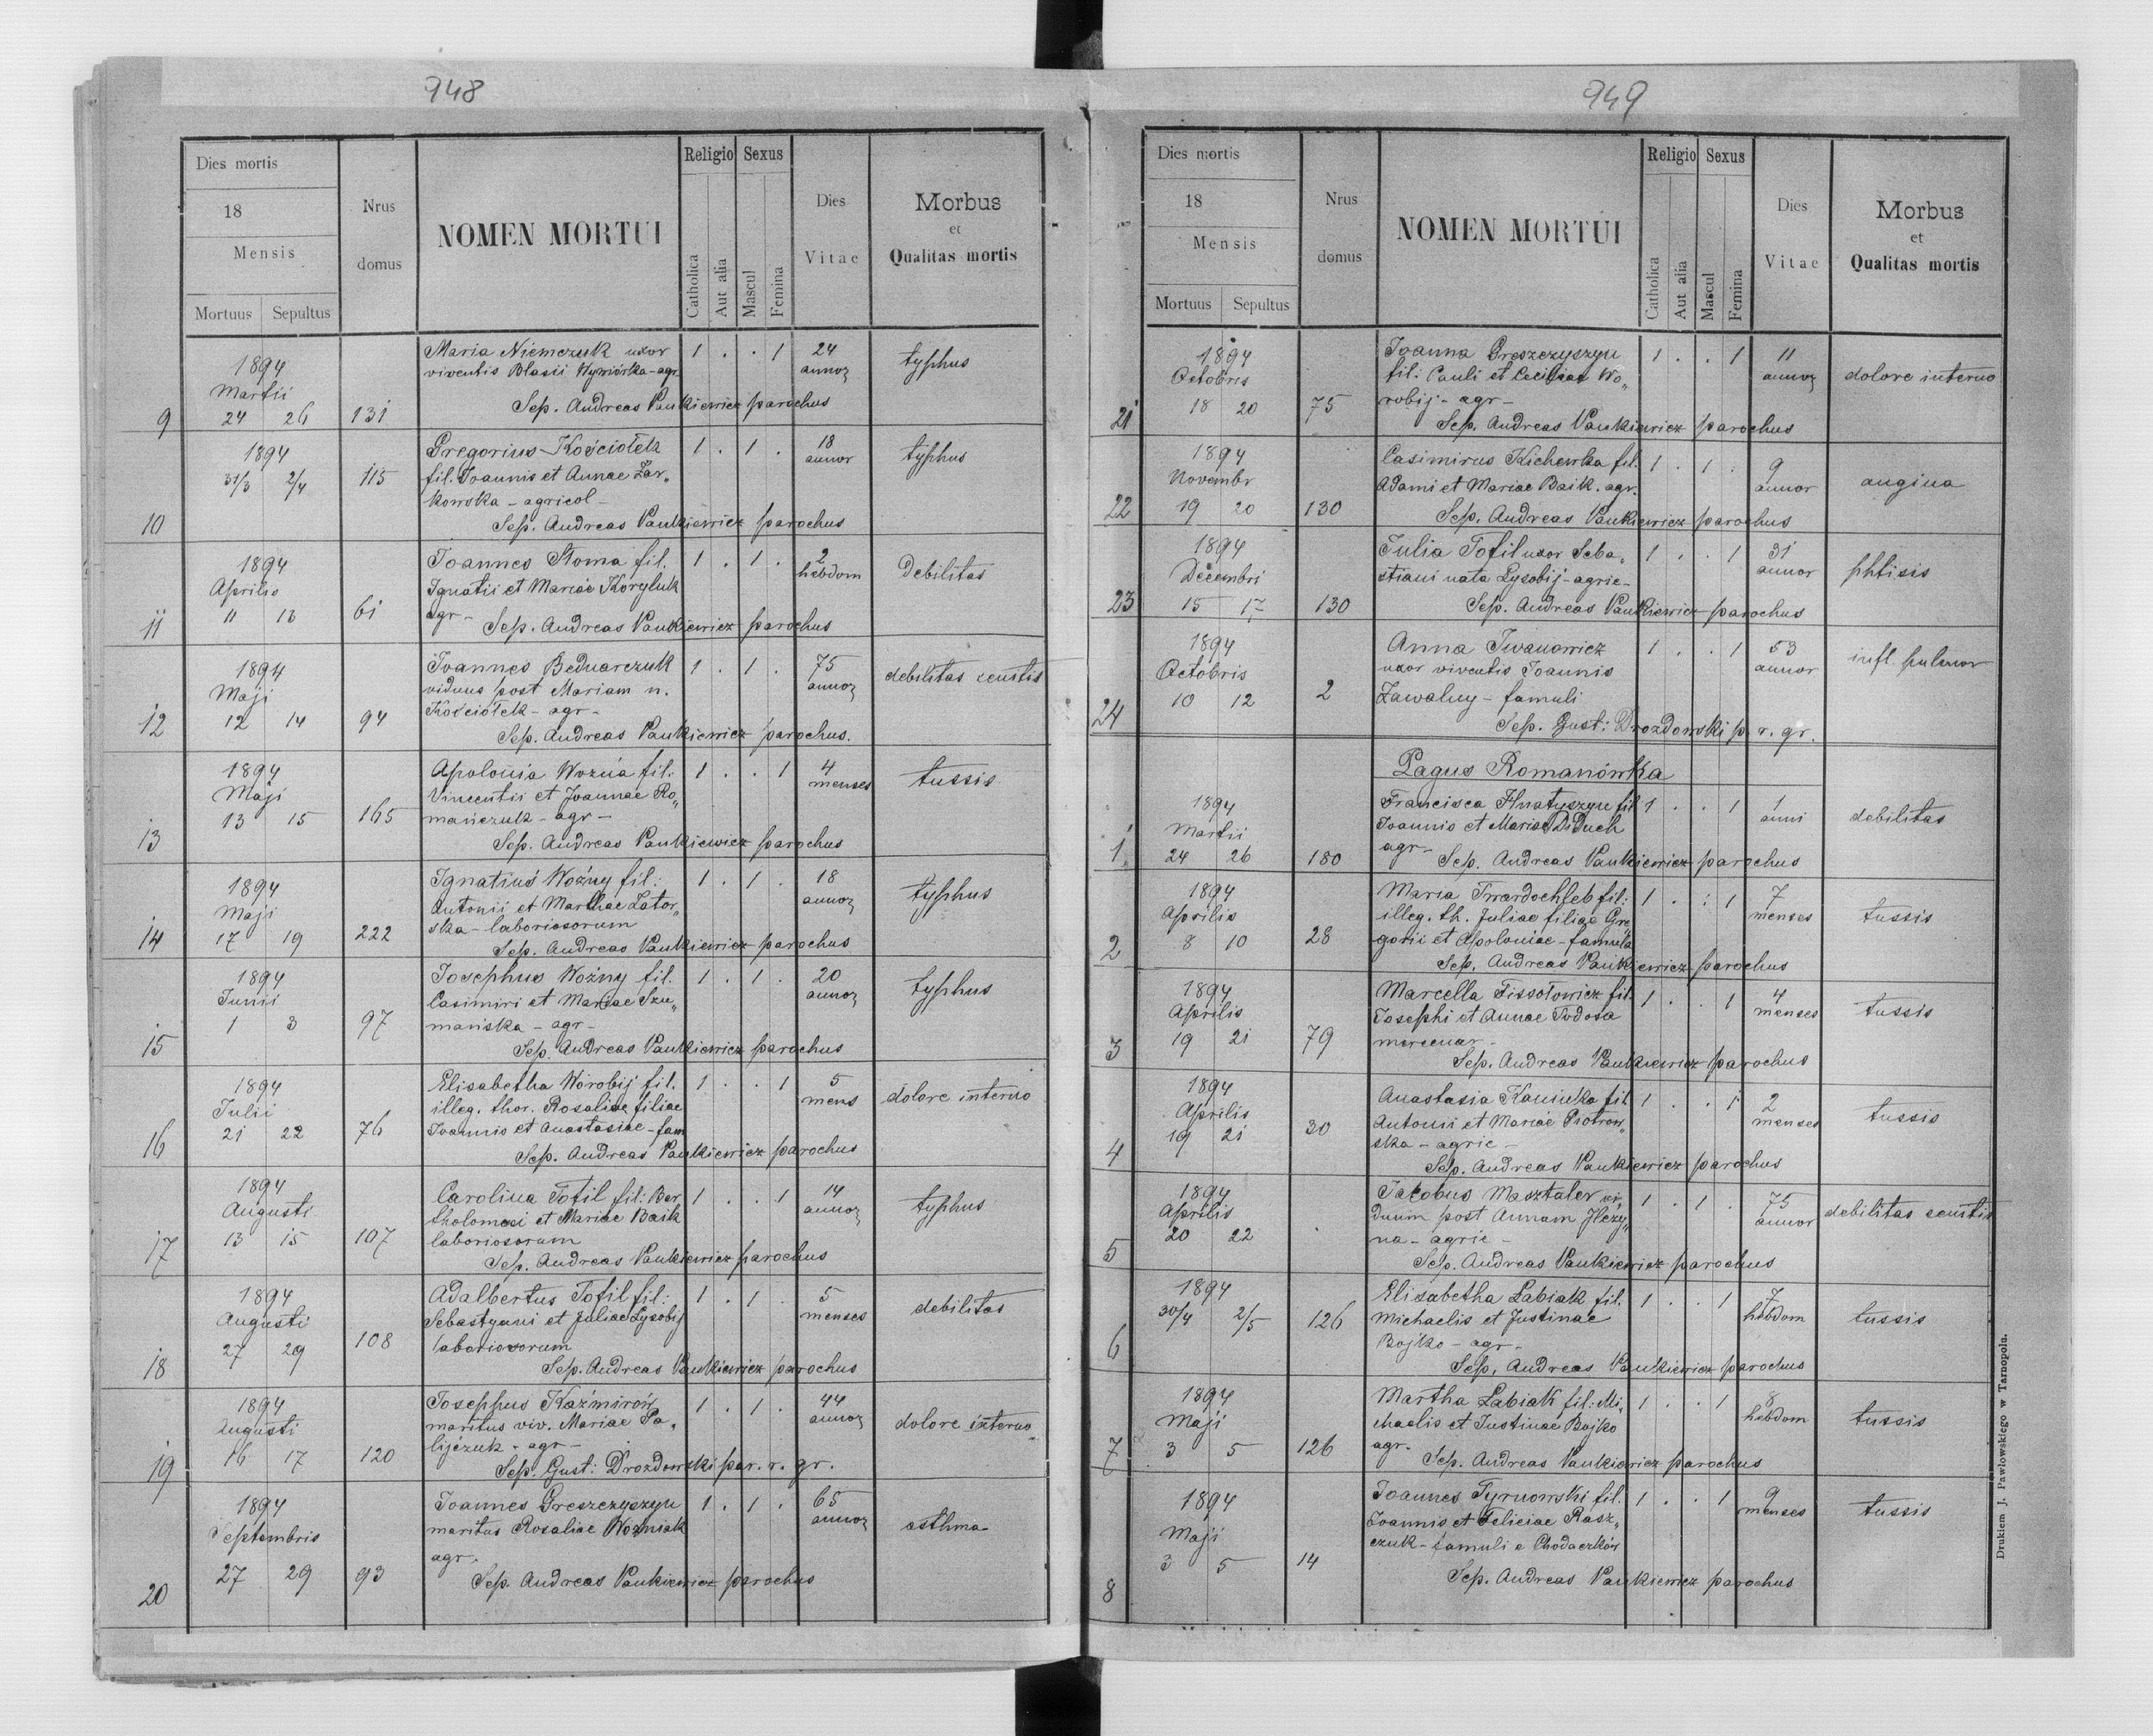 948
Dies mortis
18
Mensis
Mortuus Sepultus
Nrus domus
NOMEN MORTUI
Religio Sexus
Catholica Aut alia Mascul Femina
Dies Vitae
Morbus
et
Qualitas mortis
1894
Martii
9 24 26 131
Maria Niemczuk uxor 1 . . 1 24 annor typhus
viventis Blasii Wywiórka - agr
Sep. Andreas Pankiewicz parochus
1894
10 31/3 2/4 115
Gregorius Kościołek 1 . 1 . 18 annor typhus
fil. Joannis et Annae Żar„
kowska - agricol -
Sep. Andreas Pankiewicz parochus
1894
Aprilis
11 11 13 61
Joannes Stoma fil. 1 . 1 . 2 hebdom Debilitas
Ignatii et Mariae Koryluk
agr -
Sep. Andreas Pankiewicz parochus
1894
Maji
12 12 14 94
Joannes Bednarczuk 1 . 1 . 75 annor debilitas senitis
viduus post Mariam n.
Kościółek - agr -
Sep. Andreas Pankiewicz parochus.
1894
Maji
13 13 15 165
Apolonia Woźna fil. 1 . . 1 4 menses tussis
Vincentii et Joannae Ro„
mańczuk - agr -
Sep. Andreas Pankiewicz parochus
1894
Maji
14 17 19 222
Ignatius Woźny fil: 1 . 1 . 18 annor typhus
Antonii et Marthae Zator„
ska - laboriosorum
Sep. Andreas Pankiewicz parochus
1894
Junii
15 1 3 97
Josephus Woźny fil. 1 . 1 . 20 annor typhus
Casimiri et Mariae Szu„
mańska - agr -
Sep. Andreas Pankiewicz parochus
1894
Julii
16 21 22 76
Elisabetha Worobij fil. 1 . . 1 5 mens dolore interno
illeg. thor. Rosaliae filiae
Joannis et Anastasiae - fam
Sep. Andreas Pankiewicz parochus
1894
Augusti
17 13 15 107
Carolina Tofil fil: Bar 1 . . 1 14 annor typhus
tholomaei et Mariae Baik
laboriosorum
Sep. Andreas Pankiewicz parochus
1894
Augusti
18 27 29 108
Adalbertus Tofil fil: 1 . 1 . 5 menses debilitas
Sebastyani et Juliae Lysobij
laboriosorum
Sep. Andreas Pankiewicz parochus
1894
Augusti
19 16 17 120
Josephus Kaźmirów 1 . 1 . 44 annor dolore interno
maritus viv. Mariae Pa„
lijczuk - agr -
Sep. Gust: Drozdowski par. r. gr.
1894
Septembris
20 27 29 93
Joannes Greszczyszyn 1 . 1 . 65 annor asthma
maritus Rosaliae Woźniak
agr.
Sep. Andreas Pankiewicz parochus
949
Dies mortis
18
Mensis
Mortuus Sepultus
Nrus domus
NOMEN MORTUI
Religio Sexus
Catholica Aut alia Mascul Femina
Dies Vitae
Morbus
et
Qualitas mortis
1894
Octobris
21 18 20 75
Joanna Greszczyszyn 1 . . 1 11 annor dolore interno
fil: Pauli et Ceciliae Wo„
robij - agr -
Sep. Andreas Pankiewicz parochus
1894
Novembr
22 19 20 130
Casimirus Kichewka fil. 1 . 1 . 9 annor angina
Adami et Mariae Baik. agr.
Sep. Andreas Pankiewicz parochus
1894
Decembri
23 15 17 130
Julia Tofil uxor Seba„ 1 . . 1 31 annor phtisis
stiani nata Lysobij - agric -
Sep. Andreas Pankiewicz parochus
1894
Octobris
24 10 12 2
Anna Iwanowicz 1 . . 1 53 annor infl. pulmor
uxor viventis Joannis
Zawalny - famuli
Sep. Gust: Drozdowski p. r. gr.
Pagus Romanówka
1894
Martii
1. 24 26 180
Francisca Hnatyszyn fil 1 . . 1 1 anni debilitas
Joannis et Mariae Diduch
agr -
Sep. Andreas Pankiewicz parochus
1894
Aprilis
2 8 10 28
Maria Twardochleb fil: 1 . . 1 7 menses tussis
illeg. th. Juliae filiae Gre
gorii et Apoloniae - famula
Sep. Andreas Pankiewicz parochus
1894
Aprilis
3 19 21 79
Marcella Fissołowicz fil. 1 . . 1 4 menses tussis
Josephi et Annae Todosa
mercenar -
Sep. Andreas Pankiewicz parochus
1894
Aprilis
4 19 21 30
Anastasia Kaniuka fil 1 . . 1 2 menses tussis
Antonii et Mariae Piotrow„
ska - agric -
Sep. Andreas Pankiewicz parochus
1894
Aprilis
5 20 22 .
Jacobus Masztaler vi„ 1 . 1 . 75 annor debilitas senitis
duum post Annam
na - agric -
Sep. Andreas Pankiewicz parochus
1894
6 30/4 2/5 126
Elisabetha Labiak fil. 1 . . 1 7 hebdom tussis
Michaelis et Justinae
Bojko - agr -
Sep. Andreas Pankiewicz parochus
1894
Maji
7 3 5 126
Martha Labiak fil: Mi„ 1 . . 1 8 hebdom tussis
chaelis et Justinae Bojko
agr.
Sep. Andreas Pankiewicz parochus
1894
Maji
8 3 5 14
Joannes Tyrnowski fil. 1 . . 1 9 menses tussis
Joannis et Feliciae Rasz„
czuk - famuli e Chodaczków
Sep. Andreas Pankiewicz parochus
Drukiem J. Pawłowskiego w Tarnopolu.